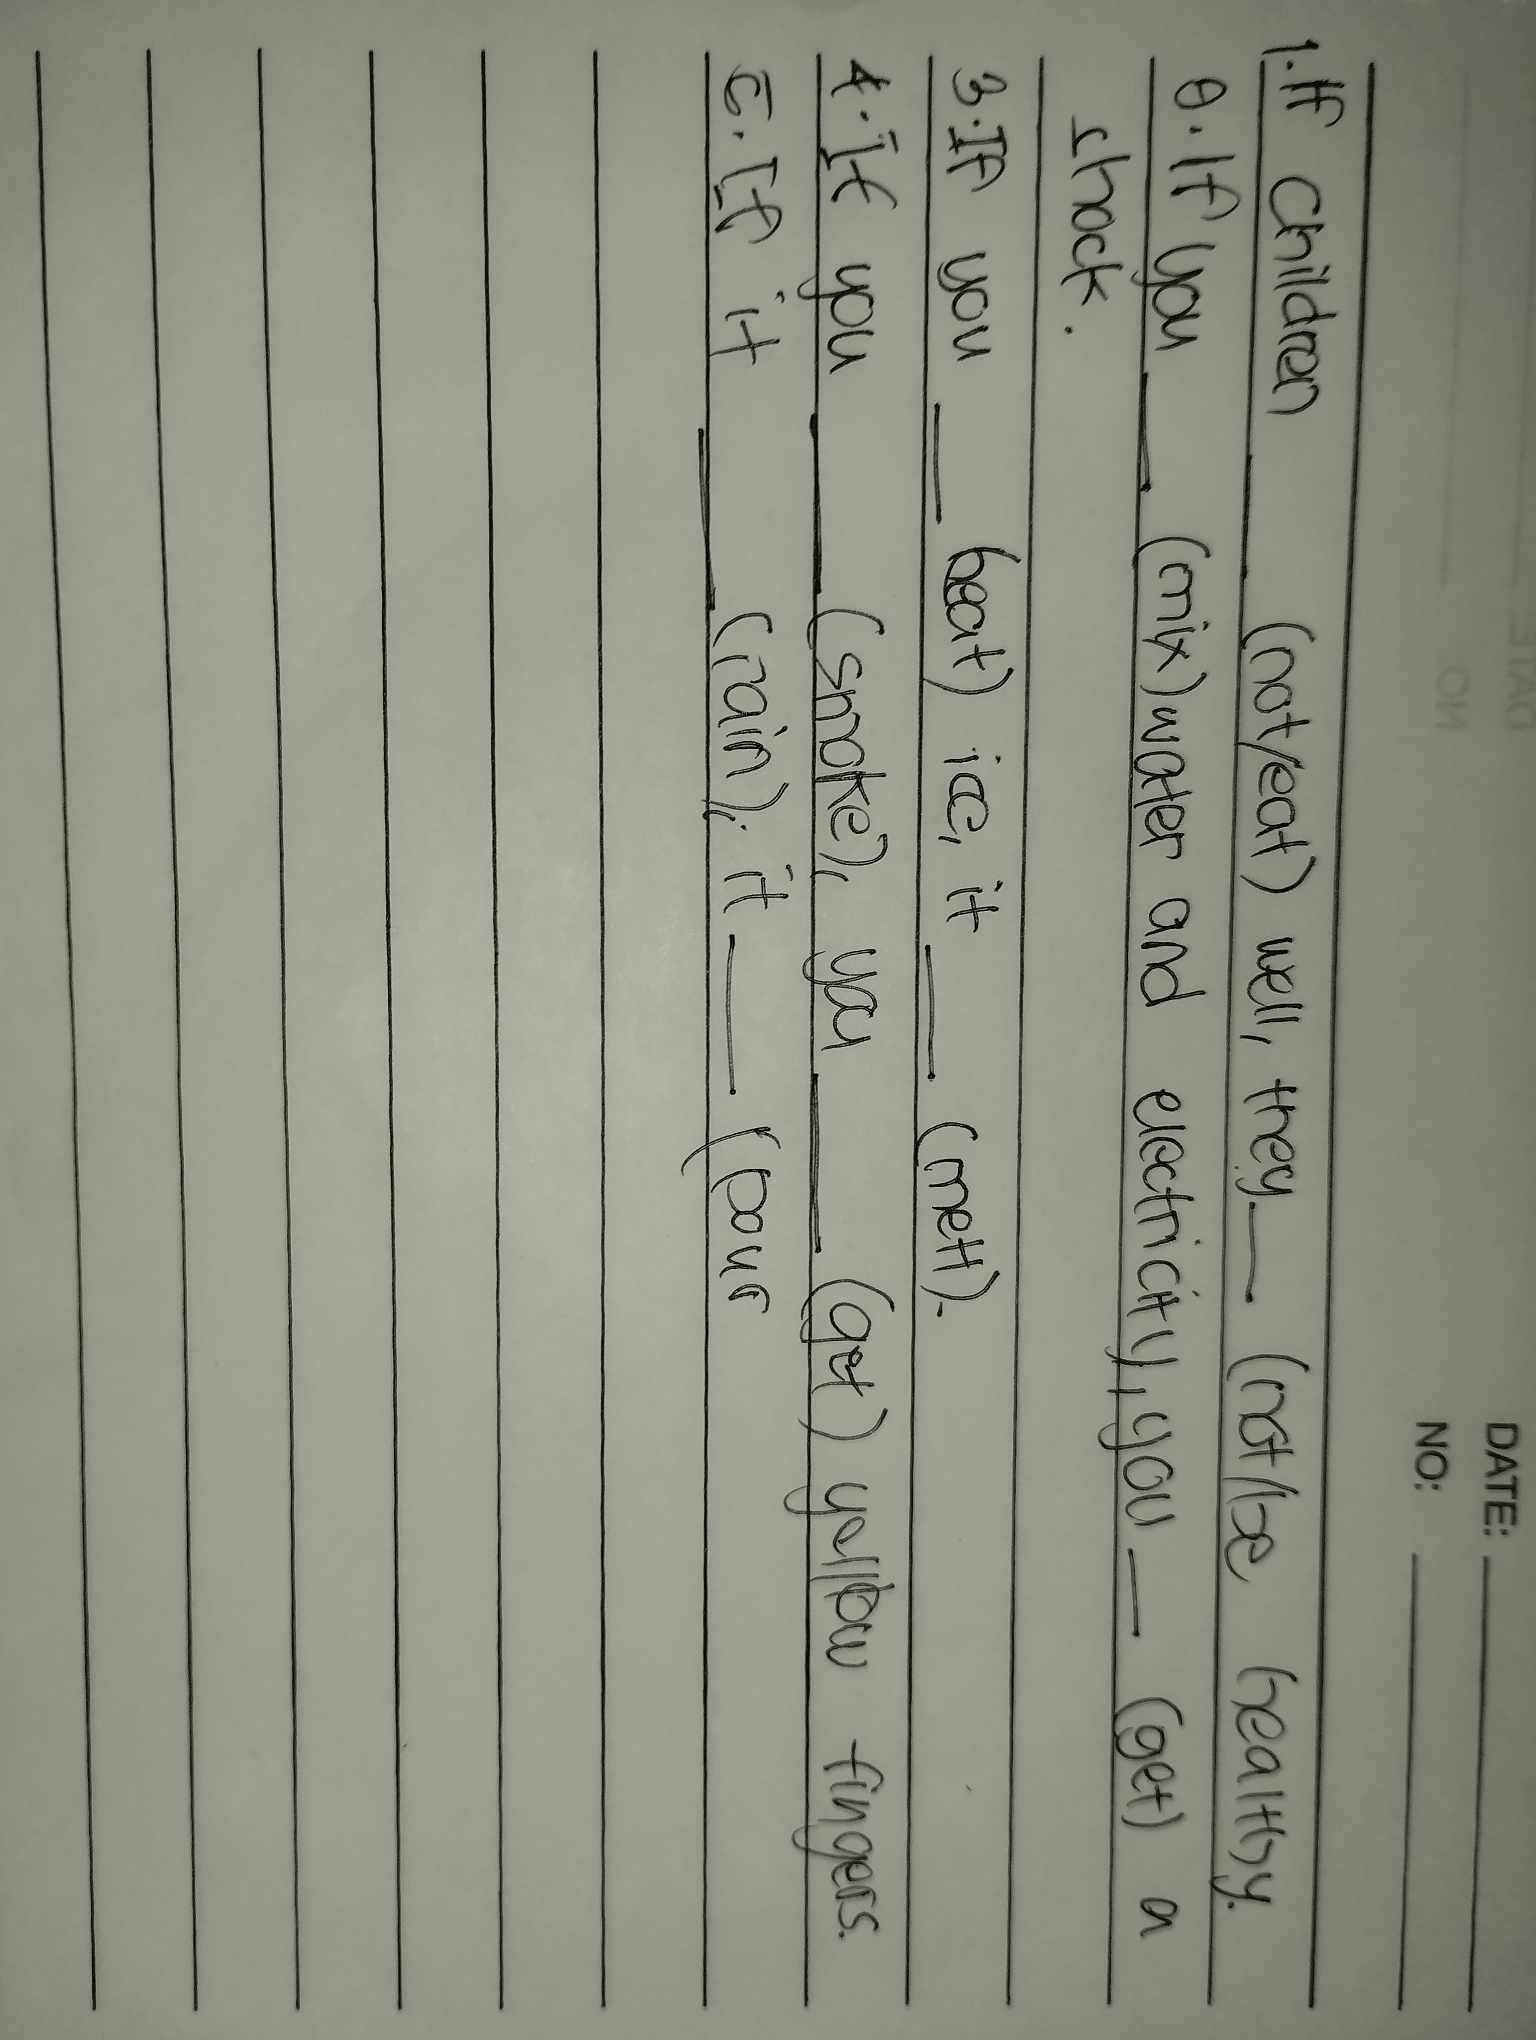 DATE:
NO:
1. If children ____ (not/eat) well, they ____ (not/be healthy.
θ. If you ____ (mix) water and electricity, you ____ (get) a
shock.
3. If you ____ heat) ice, it ____ (melt).
4. If you ____ (smoke), you ____ (get) yellow fingers.
5. If it ____ (rain), it ____ (pour